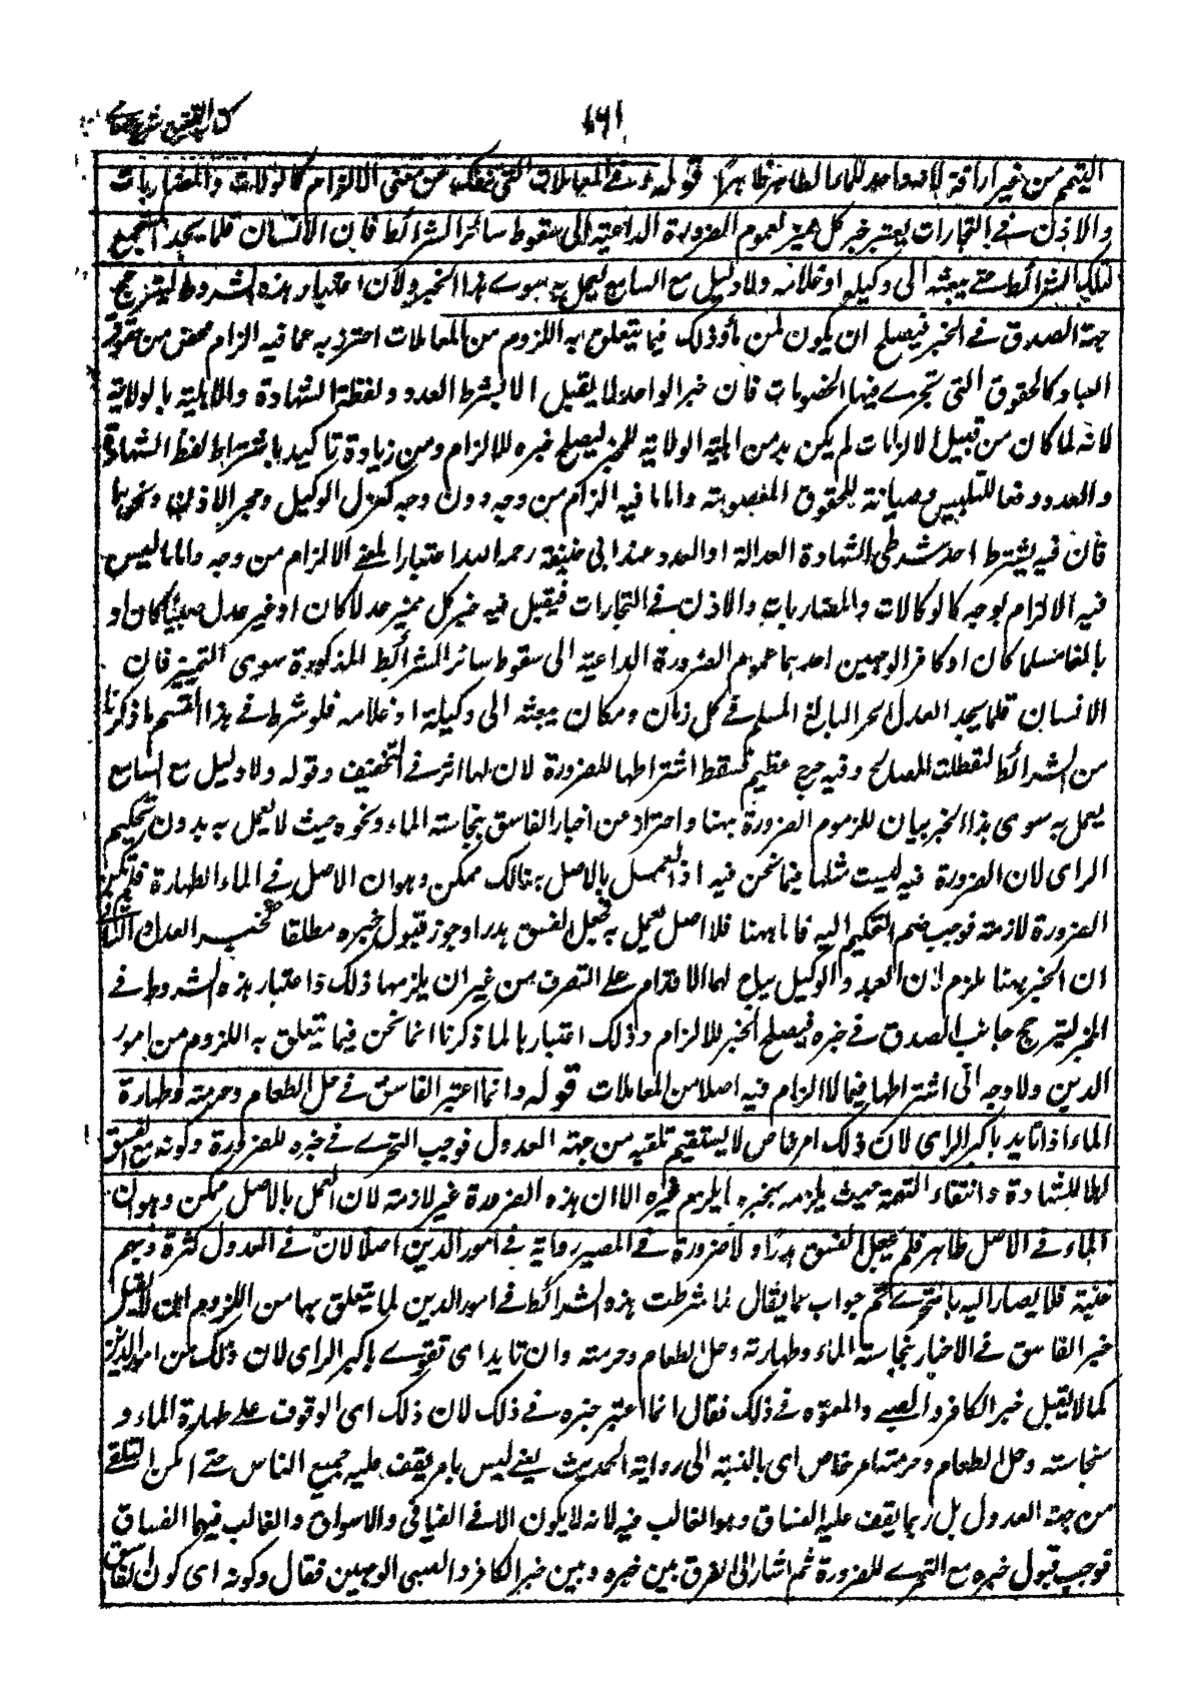 ١٦١
التيمم من غير اراقة لانه واجد للماء الطاهر ظاهرا قوله وفي المعاملات التي تنفك عن معنى الالزام كالوكالات والمضاربات
والاذن في التجارات يعتبر خبر كل مميز لعموم الضرورة الداعية الى سقوط سائر الشرائط فان الانسان قلما يجد المستجمع
لتلك الشرائط حتى يبعثه الى وكيله او غلامه ولا دليل مع السامع ليعمل به سوى هذا الخبر ولان اعتبار هذه الشروط ليترجح
جهة الصدق في الخبر فيصلح ان يكون ملزما وذلك فيما يتعلق به اللزوم من المعاملات احترز به عما فيه الزام محض من حقوق
العباد كالحقوق التي تجري فيها الخصومات فان خبر الواحد لا يقبل الا بشرط العدد ولفظة الشهادة والاهلية بالولاية
لانه لما كان من قبيل الالزامات لم يكن بد من اهلية الولاية للمخبر ليصلح خبره للالزام ومن زيادة تاكيد باشتراط لفظ الشهادة
والعدد دفعا للتلبيس وصيانة للحقوق المعصومة واما ما فيه الزام من وجه دون وجه كعزل الوكيل وحجر الاذن ونحوهما
فان فيه يشترط احد شرطي الشهادة العدالة او العدد عند ابي حنيفة رحمه الله اعتبارا لمعنى الالزام من وجه واما ما ليس
فيه الالزام بوجه كالوكالات والمضاربات والاذن في التجارات فيقبل فيه خبر كل مميز عدلا كان او غير عدل صبيا كان او
بالغا مسلما كان او كافرا لوجهين احدهما عموم الضرورة الداعية الى سقوط سائر الشرائط المذكورة سوى التمييز فان
الانسان قلما يجد العدل الحر البالغ المسلم في كل زمان ومكان يبعثه الى وكيله او غلامه فلو شرط في هذا القسم ما ذكرنا
من الشرائط لتعطلت المصالح وفيه حرج عظيم فسقط اشتراطها للضرورة لان لها اثر في التخفيف وقوله ولا دليل مع السامع
يعمل به سوى هذا الخبر بيان للزوم الضرورة ههنا واحتراز من اخبار الفاسق بنجاسة الماء ونحوه حيث لا يعمل به بدون تحكيم
الراى لان الضرورة فيه ليست مثلها فيما نحن فيه اذ العمل بالاصل هنالك ممكن وهو ان الاصل في الماء الطهارة فلم تكن
الضرورة لازمة فوجب ضم التحكيم اليه فاما ههنا فلا اصل يعمل به فجعل الفسق هدرا وجوز قبول خبره مطلقا كخبر العدل والثاني
ان الخبر ههنا غير ملزم لان العبد والوكيل يباح لهما الاقدام على التصرف من غير ان يلزمهما ذلك واعتبار هذه الشروط في
المخبر ليترجح جانب الصدق في خبره فيصلح الخبر للالزام وذلك اعتبارها لما ذكرنا انما نحن فيما يتعلق به اللزوم من امور
الدين ولا وجه الى اشتراطها فيما لا الزام فيه اصلا من المعاملات قوله وانما اعتبر الفاسق في حل الطعام وحرمته وطهارة
الماء اذا تايد باكبر الراى لان ذلك امر خاص لا يستقيم تلقيه من جهة العدول فوجب التحري في خبره للضرورة وكونه مع الفسق
اهلا للشهادة وانتفاء التهمة حيث يلزمه بخبره ما يلزم غيره الا ان هذه الضرورة غير لازمة لان العمل بالاصل ممكن وهو ان
الماء في الاصل طاهر فلم يجعل الفسق هدرا ولا ضرورة في المصير رواية في امور الدين اصلا لان في العدول كثرة وبهم
غنية فلا يصار اليه بالتحري ثم جواب عما يقال لما شرطت هذه الشرائط في امور الدين لما يتعلق بها من اللزوم لا يقبل
خبر الفاسق في الاخبار بنجاسة الماء وطهارته وحل الطعام وحرمته وان تايد اى تقوى باكبر الراى لان ذلك من امور الدين
كما لا يقبل خبر الكافر والصبي والمعتوه في ذلك فقال انما اعتبر خبره في ذلك لان ذلك اى الوقوف على طهارة الماء و
نجاسته وحل الطعام وحرمته امر خاص اى بالنسبة الى رواية الحديث يعني ليس بامر يقف عليه جميع الناس حتى امكن التلقي
من جهة العدول بل ربما يقف عليه الفساق وهو الغالب فيه لانه لا يكون الا في الفيافي والاسواق والغالب فيها الفساق
فوجب قبول خبره مع التحري للضرورة ثم اشار الى الفرق بين خبره وبين خبر الكافر والصبي الوجهين فقال وكونه اى كون الفاسق